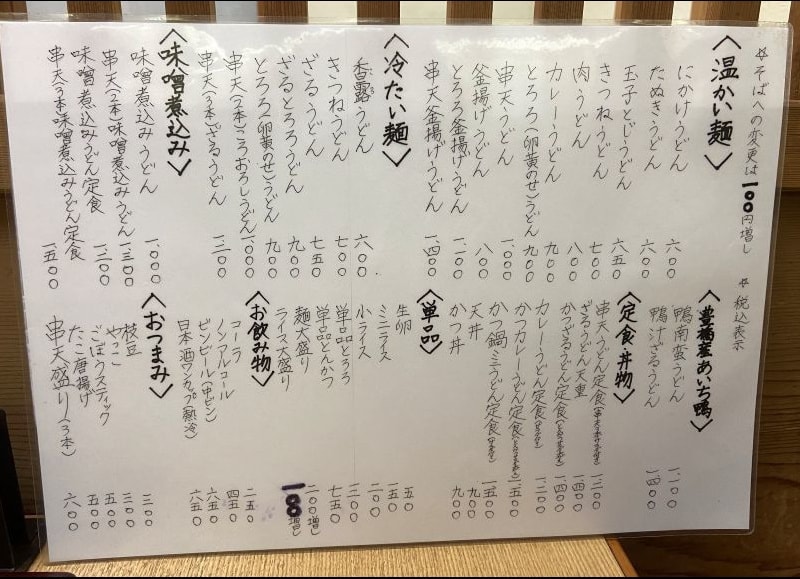 ☆そばへの変更は一〇〇円増し
☆税込表示
〈温かい麺〉
にかけうどん 六〇〇
たぬきうどん 六〇〇
玉子とじうどん 六五〇
きつねうどん 七〇〇
肉うどん 八〇〇
カレーうどん 九〇〇
とろろ(卵黄のせ)うどん 九〇〇
串天うどん 一、〇〇〇
釜揚げうどん 八〇〇
とろろ釜揚げうどん
串天釜揚げうどん 一、四〇〇
〈冷たい麺〉
香露うどん 六〇〇
きつねうどん 七〇〇
ざるうどん 七五〇
ざるとろろうどん 九〇〇
とろろ(卵黄のせ)うどん 九〇〇
串天(2本)ころおろしうどん 一、〇〇〇
串天(3本)ざるうどん 一、三〇〇
〈味噌煮込み〉
味噌煮込みうどん 一、〇〇〇
串天(2本)味噌煮込みうどん 一、三〇〇
味噌煮込みうどん定食 一、二〇〇
串天(3本)味噌煮込みうどん定食 一、五〇〇
〈豊橋産あいち鴨〉
鴨南蛮うどん 一、一〇〇
鴨汁ざるうどん 一、四〇〇
〈定食丼物〉
串天うどん定食 一、三〇〇
ざるうどん天重 一、四〇〇
かつざるうどん定食 一、四〇〇
カレーうどん定食 一、二〇〇
かつカレーうどん定食 一、五〇〇
かつ鍋ミニうどん定食 一、五〇〇
天丼 九〇〇
かつ丼 九〇〇
〈単品〉
生卵 五〇
ミニライス 一五〇
小ライス 二〇〇
単品とろろ 三〇〇
単品とんかつ 七五〇
麺大盛り 二〇〇増し
ライス大盛り 一〇〇増し
〈お飲み物〉
コーラ 二五〇
ノンアルコール 四五〇
ビンビール(中ビン) 六五〇
日本酒ワンカップ(熱冷) 六五〇
〈おつまみ〉
枝豆 三〇〇
やっこ 三〇〇
ごぼうスティック 五〇〇
たこ唐揚げ 五〇〇
串天盛り(3本) 六〇〇